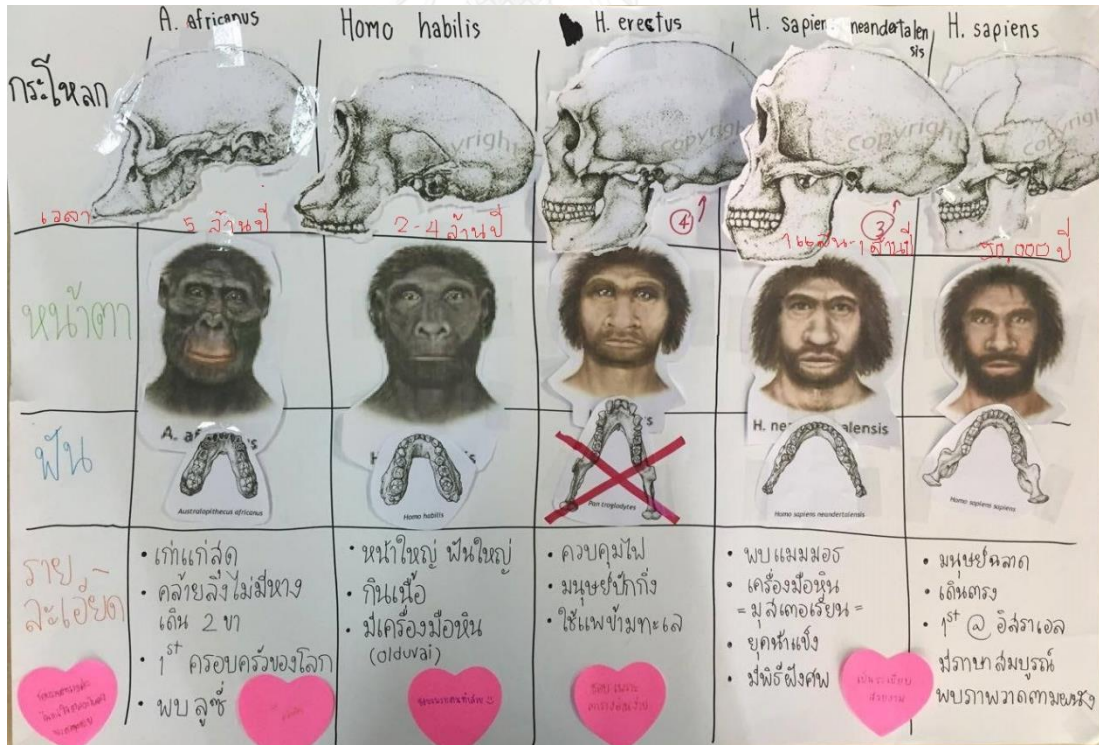 A. africanus
Homo habilis
H. erectus
H. sapiens neandertalensis
H. sapiens
กระโหลก
copyright
copyright
copyright
เวลา
5 ล้านปี
2-4 ล้านปี
④
③
1 แสน-1 ล้านปี
50,000 ปี
หน้าตา
ฟัน
Australopithecus africanus
Homo habilis
Pan troglodytes
H. neandertalensis
Homo sapiens neandertalensis
Homo sapiens sapiens
ราย-
ละเอียด
• เก่าแก่สุด
• คล้ายลิงไม่มีหาง
เดิน 2 ขา
• 1st ครอบครัวของโลก
• พบ ลูซี่
• หน้าใหญ่ ฟันใหญ่
• กินเนื้อ
• มีเครื่องมือหิน
(Olduvai)
• ควบคุมไฟ
• มนุษย์ปักกิ่ง
• ใช้แพข้ามทะเล
• พบแมมมอธ
• เครื่องมือหิน
= มุสเตอเรียน =
• ยุคน้ำแข็ง
• มีพิธีฝังศพ
• มนุษย์ฉลาด
• เดินตรง
• 1st @ อิสราเอล
มีภาษาสมบูรณ์
พบภาพวาดตามผนัง